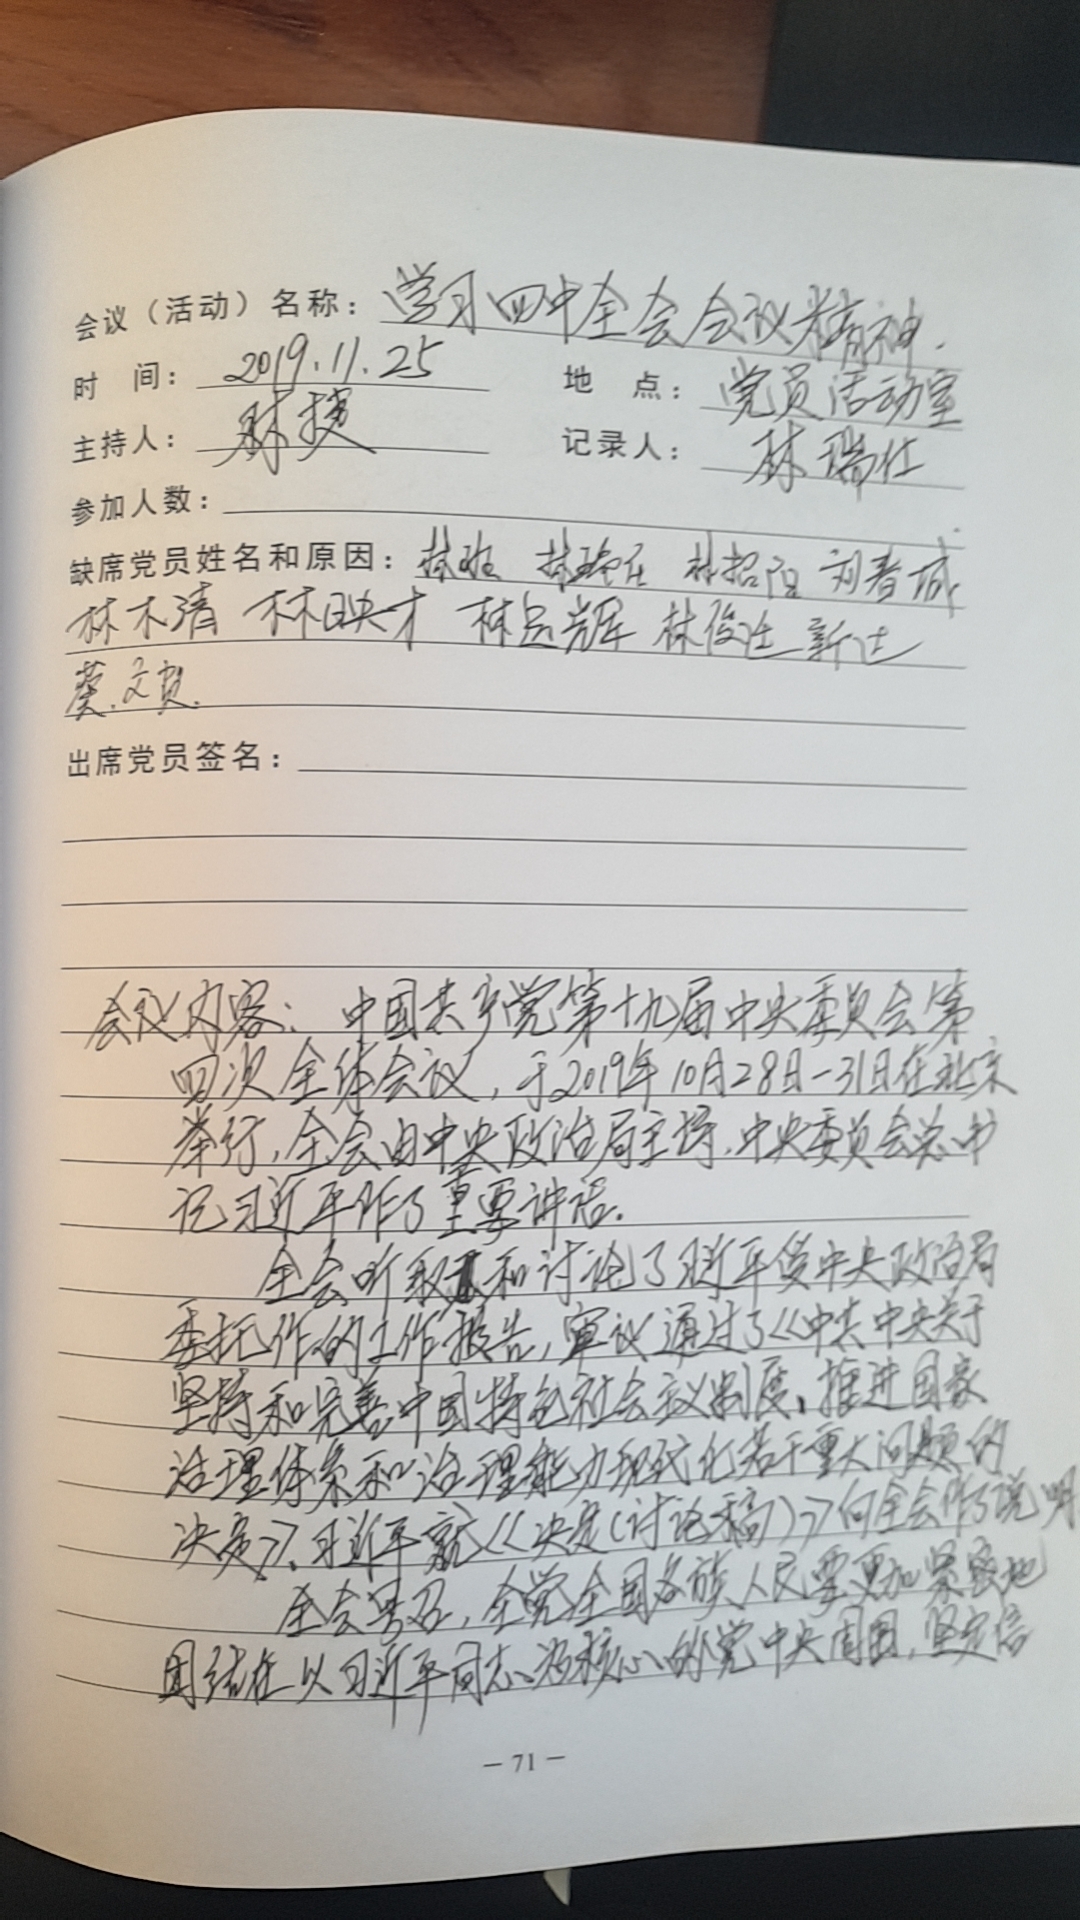 会议（活动）名称：学习四中全会会议精神.
时 间：2019.11.25 地 点：党员活动室
主持人：林捷 记录人：林瑞仕
参加人数：
缺席党员姓名和原因：林 林 林招 刘春城
林木清 林映才 林 辉 林俊 新
蔡文贺.
出席党员签名：
会议内容：中国共产党第十九届中央委员会第
四次全体会议，于2019年10月28日-31日在北京
举行，全会由中央政治局主持.中央委员会总书
记习近平作了重要讲话.
全会听取和讨论了习近平受中央政治局
委托作的工作报告，审议通过了《中共中央关于
坚持和完善中国特色社会主义制度、推进国家
治理体系和治理能力现代化若干重大问题的
决定》、习近平就《决定（讨论稿）》向全会作了说明
全会号召，全党全国各族人民要更加紧密地
团结在以习近平同志为核心的党中央周围，坚定信
－71－